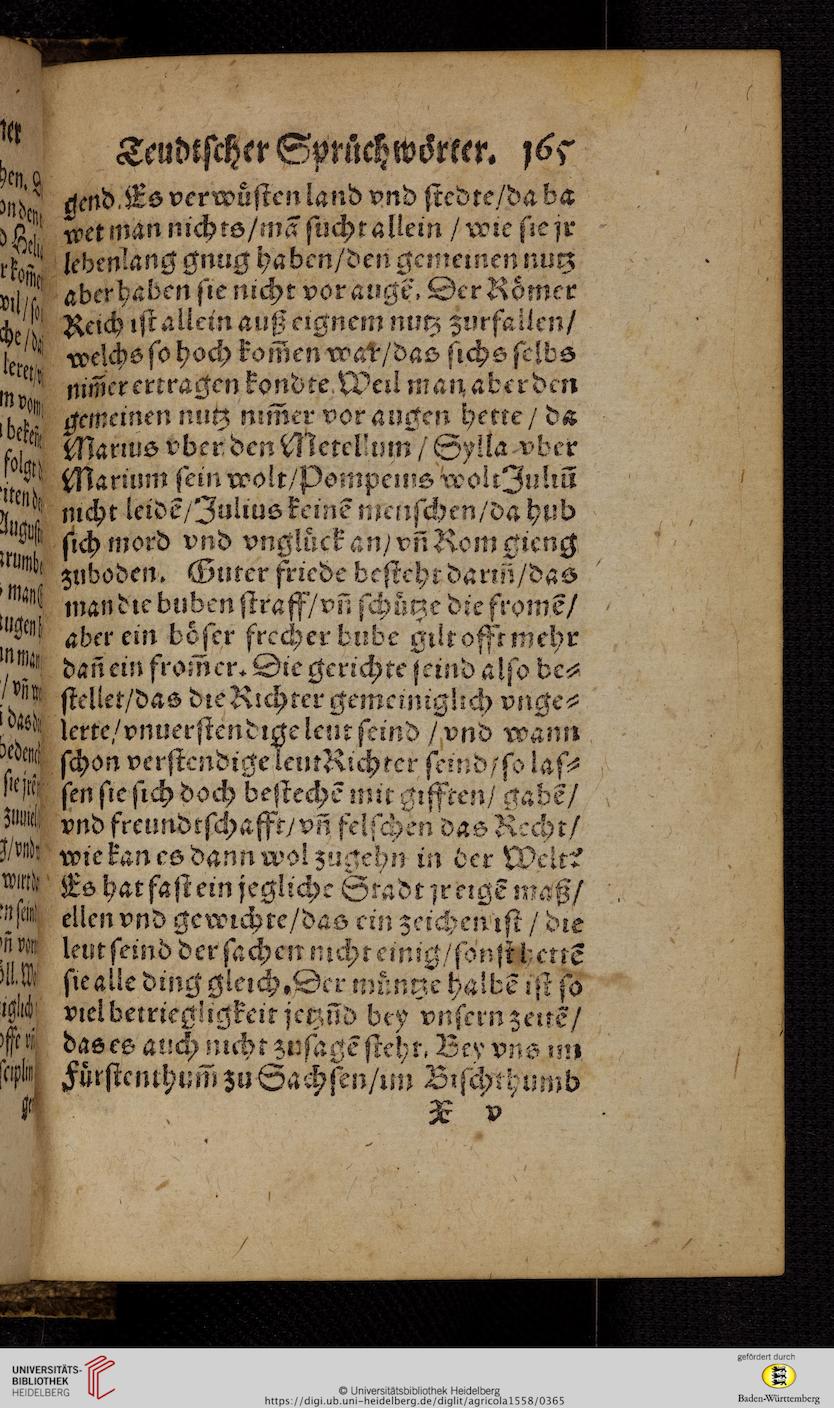 Teudtscher Sprůchwőrter. 165
gend. Es verwůsten land vnd stedte/da ba
wet man nichts/mā sucht allein / wie sie jr
lebenlang gnug haben/den gemeinen nutz
aber haben sie nicht vor augē. Der Rőmer
Reich ist allein auß eignem nutz zurfallen/
welchs so hoch kom̃en war/das sichs selbs
nim̃er ertragen kondte. Weil man aber den
gemeinen nutz nim̃er vor augen hette / da
Marius vber den Metellum / Sylla vber
Marium sein wolt/Pompeius wolt Juliū
nicht leidē/Julius keinē menschen/da hub
sich mord vnd vnglůck an/vñ Rom gieng
zuboden. Guter friede besteht dariñ/das
man die buben straff/vñ schůtze die fromē/
aber ein bőser frecher bube gilt offt mehr
dañ ein from̃er. Die gerichte seind also be⸗
stellet/das die Richter gemeiniglich vnge⸗
lerte/vnuerstendige leut seind / vnd wann
schon verstendige leut Richter seind/so las⸗
sen sie sich doch bestechē mit gifften/ gabē/
vnd freundtschafft/vñ felschen das Recht/
wie kan es dann wol zugehn in der Welt?
Es hat fast ein jegliche Stadt jr eigē maß/
ellen vnd gewichte/das ein zeichen ist / die
leut seind der sachen nicht einig/sonst hettē
sie alle ding gleich. Der můntze halbē ist so
viel betriegligkeit jetzūd bey vnsern zeitē/
das es auch nicht zusagē steht. Bey vns im
Fůrstenthum̃ zu Sachsen/im Bischthumb
X v
UNIVERSITÄTS-
BIBLIOTHEK
HEIDELBERG
© Universitätsbibliothek Heidelberg
https://digi.ub.uni-heidelberg.de/diglit/agricola1558/0365
gefördert durch
Baden-Württemberg